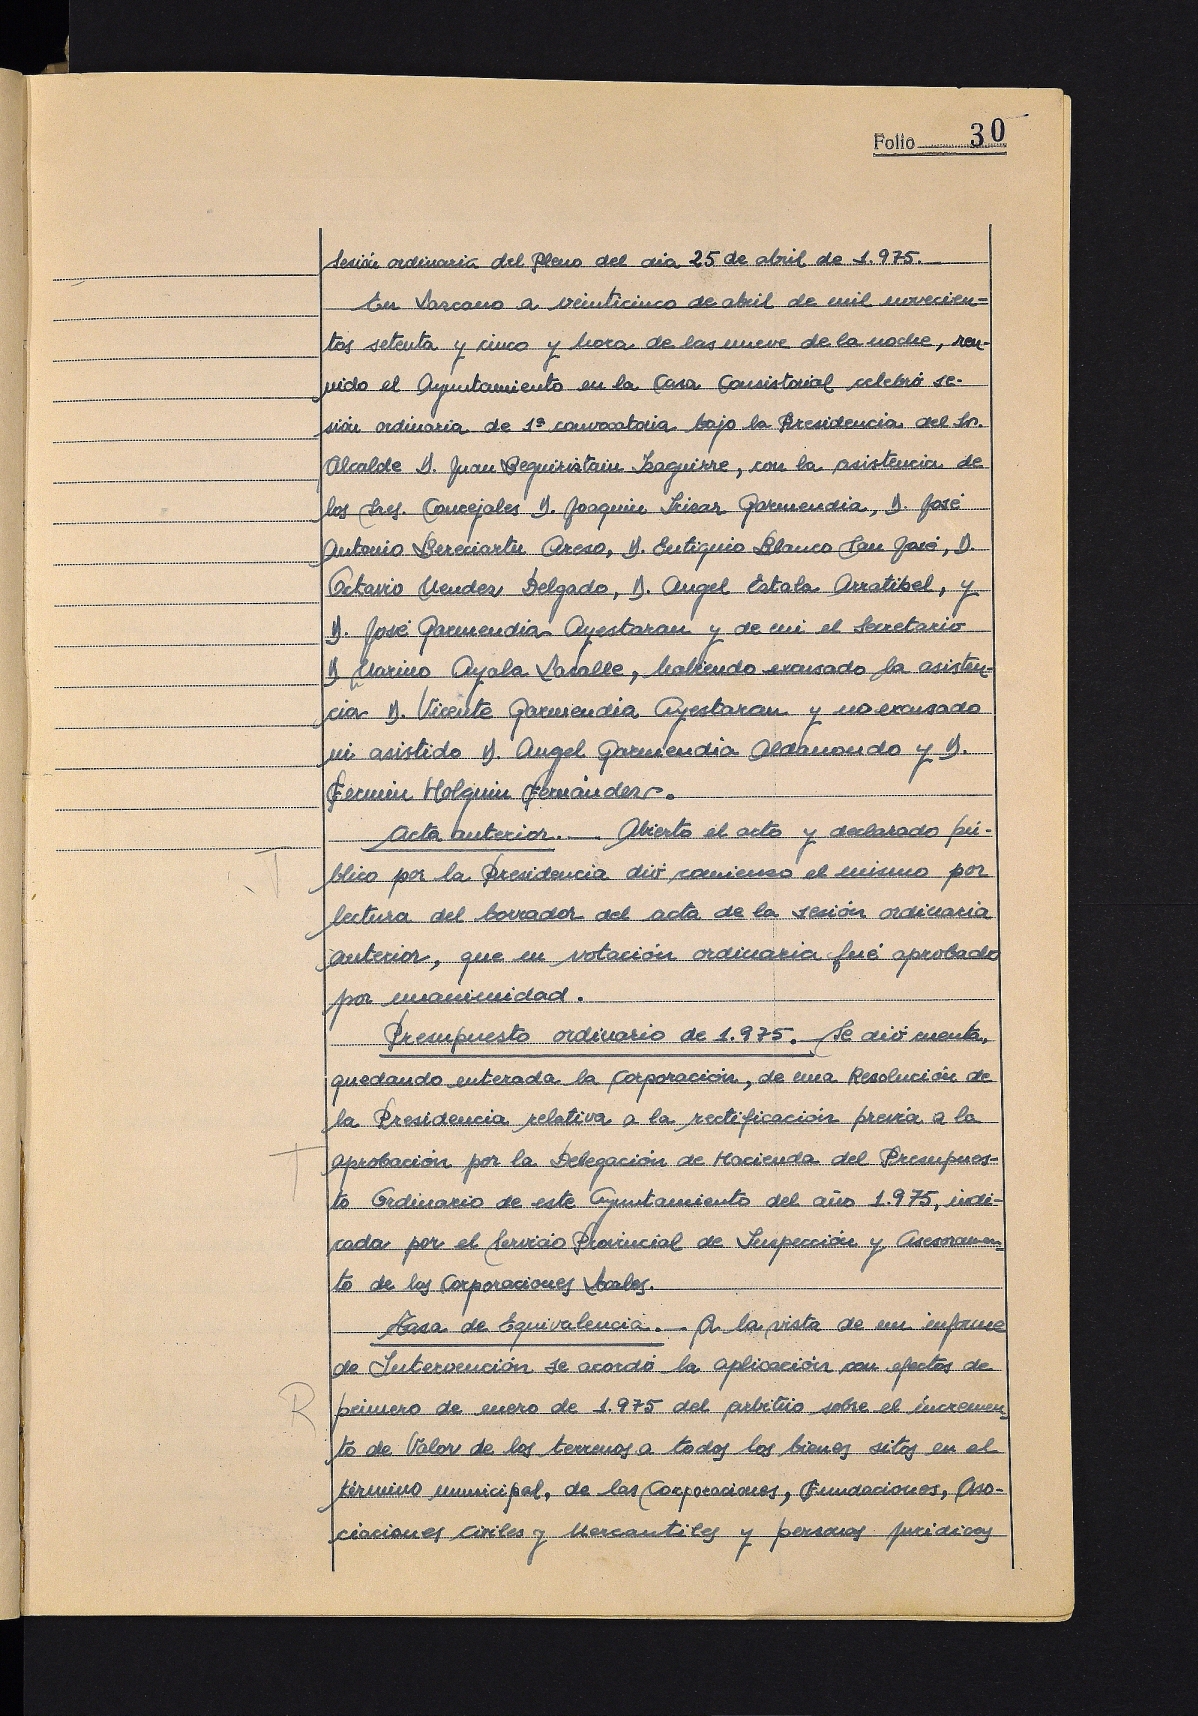 Folio 30
Sesión ordinaria del Pleno del dia 25 de abril de 1.975.
En Lazcano a veinticinco de abril de mil novecien-
tos setenta y cinco y hora de las nueve de la noche, reu-
nido el Ayuntamiento en la Casa Consistorial celebró se-
sión ordinaria de 1ª convocatoria bajo la Presidencia del Sr.
Alcalde D. Juan Beguiristain Izaguirre, con la asistencia de
los Sres. Concejales D. Joaquin Irizar Garmendia, D. José
Antonio Bereciartu Areso, D. Eutiquio Blanco San José, D.
Octavio Mendez Delgado, D. Angel Estala Arratibel, y
D. José Garmendia Ayestaran y de mi el Secretario
D Marino Ayala Lasalle, habiendo excusado la asisten-
cia D. Vicente Garmendia Ayestaran y no excusado
ni asistido D. Angel Garmendia Aldamondo y D.
Fermin Holguin Fernández.
Acta anterior. — Abierto el acto y declarado pú-
T
blico por la Presidencia dió comienzo el mismo por
lectura del borrador del acta de la sesión ordinaria
anterior, que en votación ordinaria fué aprobado
por unanimidad.
Presupuesto ordinario de 1.975. Se dió cuenta,
quedando enterada la Corporación, de una Resolución de
la Presidencia relativa a la rectificación previa a la
T
aprobación por la Delegación de Hacienda del Presupues-
to Ordinario de este Ayuntamiento del año 1.975, indi-
cada por el Servicio Provincial de Inspección y Asesoramien-
to de las Corporaciones Locales.
Tasa de Equivalencia. — A la vista de un informe
de Intervención se acordó la aplicación con efectos de
R
primero de enero de 1.975 del arbitrio sobre el incremen-
to de Valor de los terrenos a todos los bienes sitos en el
término municipal, de las Corporaciones, Fundaciones, Aso-
ciaciones Civiles y Mercantiles y personas juridicas